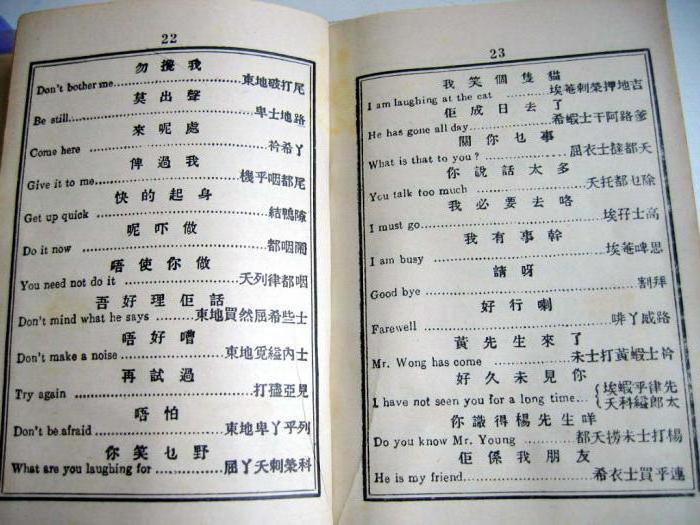 22
勿攪我
Don't bother me 尾打破地東
莫出聲
Be still 路地士卑
來呢處
Come here 丫希衿
俾過我
Give it to me 尾都咽乎機
快的起身
Get up quick 隙鴨結
呢吓做
Do it now 鬧咽都
唔使你做
You need not do it 咽都律列夭
吾好理佢話
Don't mind what he says 士些希屈然買地東
唔好嘈
Don't make a noise 士內縊覓地東
再試過
Try again 見亞孻打
唔怕
Don't be afraid 列乎丫卑地東
你笑乜野
What are you laughing for 科榮刺夭丫屈
23
我笑個隻貓
I am laughing at the cat 吉地押榮刺菴埃
佢成日去了
He has gone all day 爹路阿干士蝦希
關你乜事
What is that to you? 夭都撻士衣屈
你說話太多
You talk too much 除乜都托夭
我必要去咯
I must go 高士孖埃
我有事幹
I am busy 思啤菴埃
請呀
Good bye 拜割
好行喇
Farewell 路威丫啡
黃先生來了
Mr. Wong has come 衿士蝦黃打士未
好久未見你
I have not seen you for a long time 先律乎蝦埃
太郎縊科夭
你識得楊先生咩
Do you know Mr. Young 楊打士未撈夭都
佢係我朋友
He is my friend 連乎買士衣希